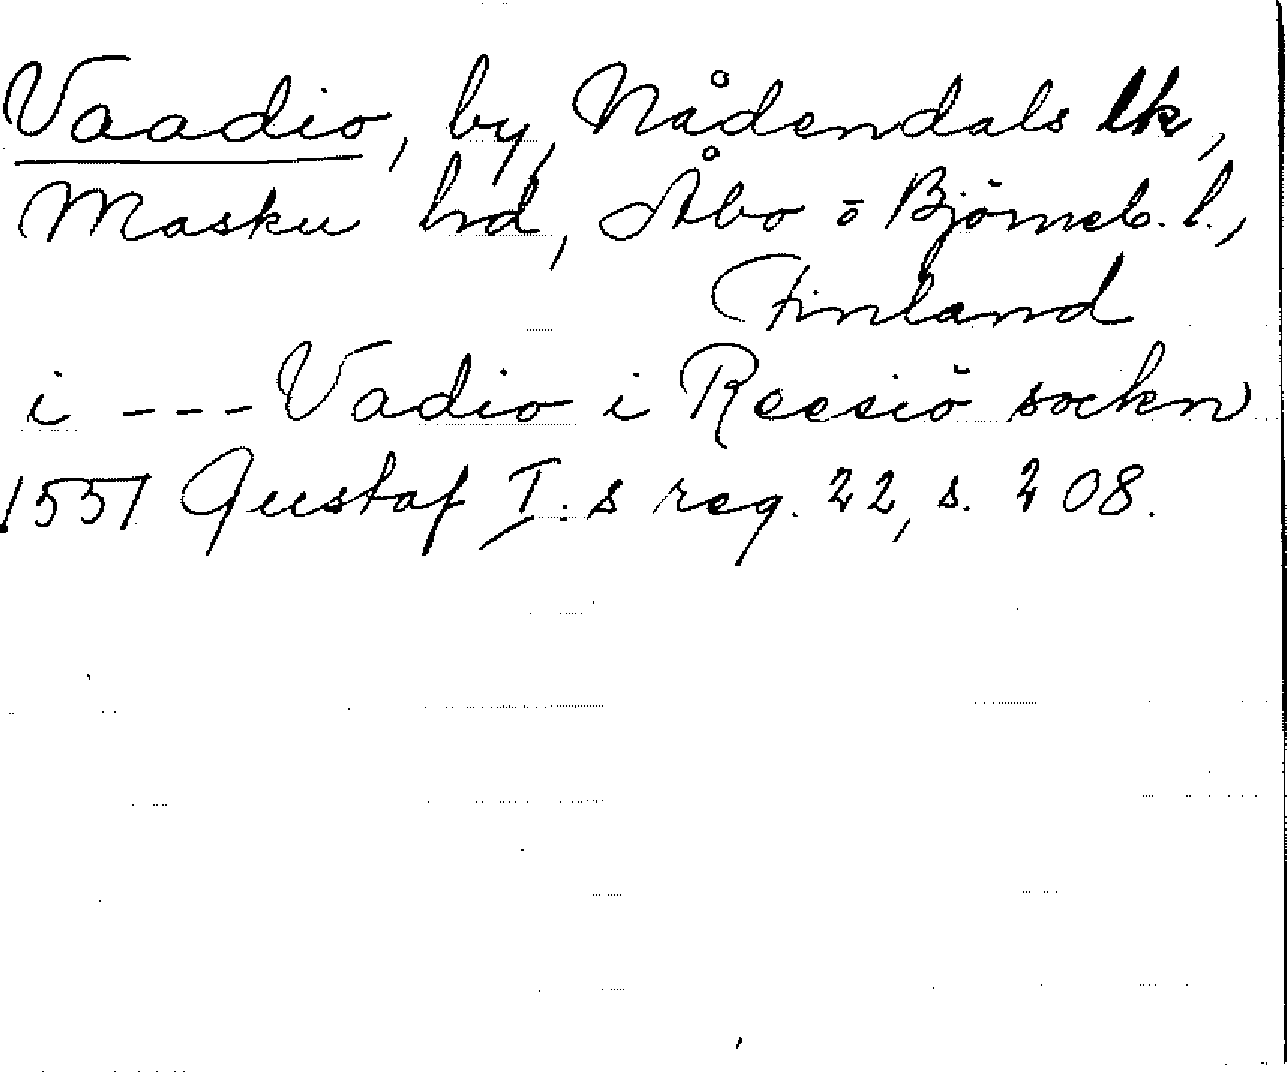 Vaadio, by, Nådendals lk,
Masku hd, Åbo o Björneb. l.,
Finland
i --- Vadio i Reesiö sockn
1551 Gustaf I:s reg. 22, s. 208.